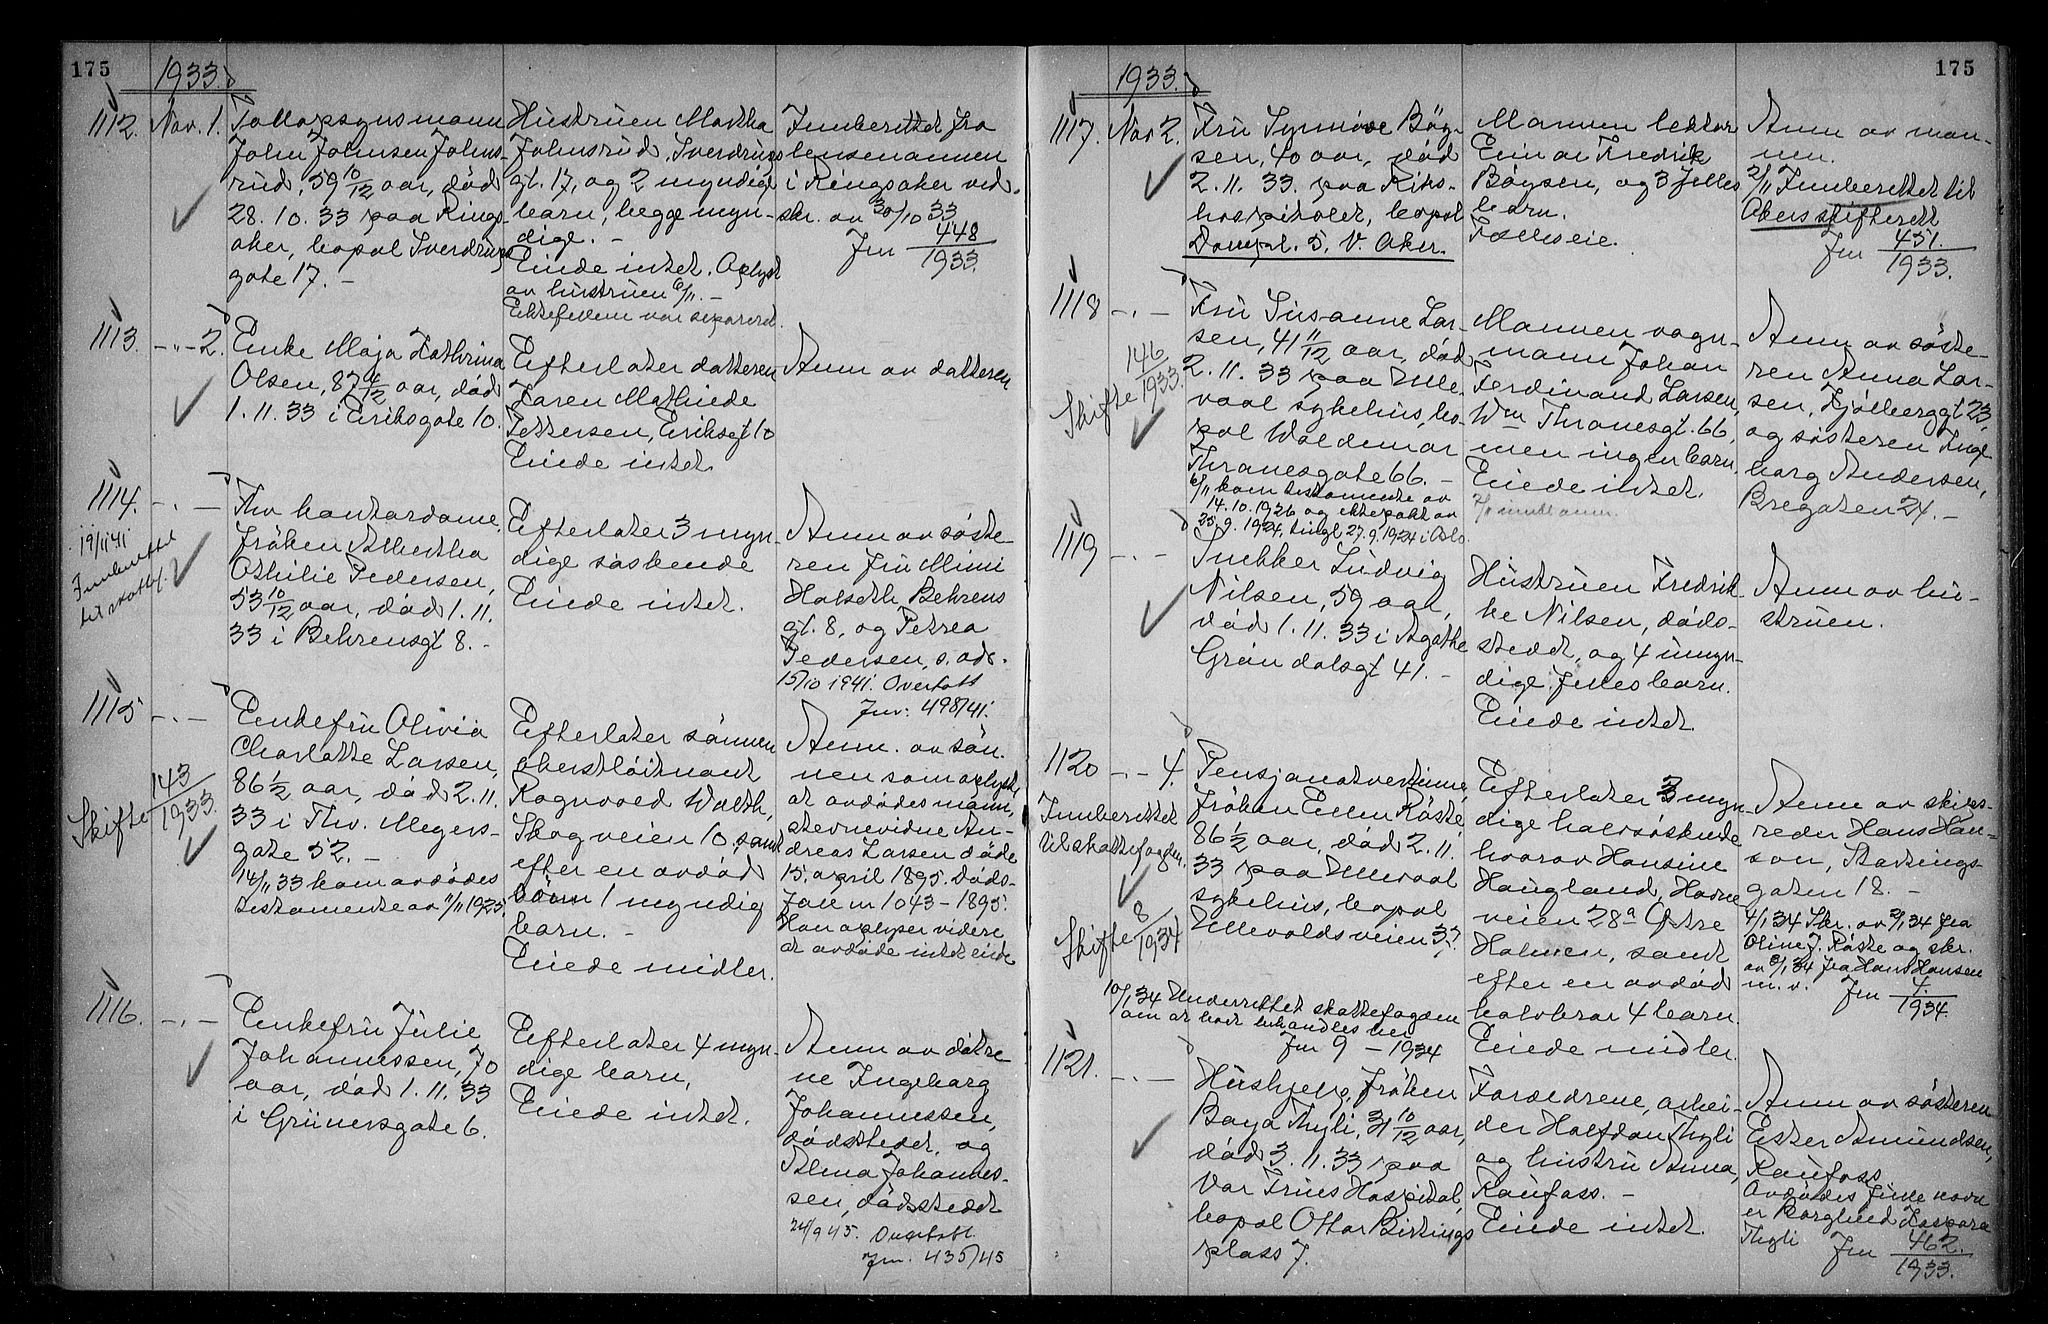 175
1933.
1112. Nov. 1.
Tollopsynsmann
John Johnsen Johns-
rud, 59 10/12 aar, död
28.10.33 paa Rings-
aker, bopal Sverdrups
gate 17. -
Hustruen Martha
Johnsrud, Sverdrups
gt. 17, og 2 myndige
barn, begge myn-
dige. -
Eiede intet. Oplyst
av hustruen 6/11. -
Ektefellene var separert.
Innberettet fra
lensmannen
i Ringsaker ved
skr. av 30/10 33
Jnr 448
1933.
1113. -"- 2.
Enke Maja Kathrina
Olsen, 87 4/12 aar, död
1.11.33 i Eriksgate 10.
Efterlater datteren
Karen Mathilde
Pettersen, Eriksgt 10
Eiede intet.
Anm av datteren
1114. -"-
19/11 41
Innberettet
til skattef.
Fhv kontordame,
fröken Albertha
Othilie Pedersen,
53 10/12 aar, död 1.11.
33 i Behrensgt 8. -
Efterlater 3 myn-
dige söskende
Eiede intet.
Anm av söste-
ren fru Mimi
Halseth Behrens
gt. 8, og Petrea
Pedersen, s. ads.
15/10 1941. Overtatt
Jnr: 498/41.
1115 -"-
Skifte 143
1933.
Enkefru Olivia
Charlotte Larsen,
86 1/2 aar, död 2.11.
33 i Thv. Meyers-
gate 52. -
14/11 33 kom avdödes
testamente av 11/11 1925.
Efterlater sönnen
oberstlöitnant
Ragnvald Walth,
Skogveien 10, samt
efter en avdöd
1 myndig
barn. -
Eiede midler.
Anm. av sön-
nen som oplyste
at avdödes mann,
stevnevidne An-
dreas Larsen döde
15. april 1895. Döds-
fall nr 1043 - 1895.
Han oplyser videre
at avdöde intet eide
1116. -"-
Enkefru Julie
Johannessen, 70
aar, död 1.11.33
i Grünersgate 6.
Efterlater 4 myn-
dige barn,
Eiede intet.
Anm av dötre
ne Ingeborg
Johannessen,
dödstedet, og
Alma Johannes-
sen, dödsstedet
24/9 45. Overtatt.
Jnr. 435/45
175
1933.
1117. Nov 2.
Fru Synnöve Böy-
sen, 40 aar, död
2.11.33. paa Riks-
hospitalet, bopal
5. V. Aker.
Mannen lektor
Einar Fredrik
Böysen, og 3 felles
barn.
Felleseie.
Anm av man-
nen.
2/11 Innberettet til
Akers skifterett
Jnr 451.
1933.
1118 -"-
Skifte 146
1933.
Fru Susanne Lar-
sen, 41 11/12 aar, död
2.11.33 paa Ulle-
vaal sykehus, bo-
pal Waldemar
Thranesgate 66. -
6/11 kom testamente av
14.10.1926 og ektepakt av
25.9.1924, tingl 27.9.1924 i Oslo.
Mannen vogn-
mann Johan
Ferdinand Larsen,
Wm Thranesgt. 66,
men ingen barn.
Eiede intet.
Anm av söste-
ren Anna Lar-
sen, Kjölberggt 23,
og sösteren Inge
borg Andersen,
Bregaten 24. -
1119 -"-
Snekker Ludvig
Nilsen, 59 aar,
död 1.11.33 i Agathe
Gröndalsgt 41. -
Hustruen Fredrik-
ke Nilsen, döds-
stedet, og 4 umyn-
dige felles barn.
Eiede intet.
Anm av hu-
struen.
1120 -"- 4.
Innberettet
til skattefogden.
Skifte 8
1934
Pensjonatvertinne,
fröken Ellen Röste
86 1/2 aar, död 2.11.
33 paa Ullevaal
sykehus, bopal
Ullevoldsveien 37.
10/1 34 Underrettet skattefogden
om at boet behandles her
Jnr 9 - 1934
Efterlater 3 myn-
dige halvsöskende
hvorav Hansine
Haugland, Havne
veien 28a Östre
Halmen, samt
efter en avdöd
halvbror 4 barn.
Eiede midler.
Anm av skips-
reder Hans Han-
son, Stortings-
gaten 18. -
4/1 34 Skr. av 3/1 34 fra
Oline J. Röste og skr.
av 8/1 34 fra Hans Hansen
m. v.
Jnr 4.
1934.
1121. -"-
Hushjelp, fröken
Baya Thyli, 31 10/12 aar,
död 3.11.33 paa
Vor Frues Hospital,
bopal Ottar Birtings
plass 7.
Foreldrene, arbei-
der Halfdan Thyli
og hustru Anna,
Raufoss. -
Eiede intet.
Anm av sösteren
Ester Amundsen,
Raufoss
Avdödes fulle navn
er Borghild Kaspara
Thyli
Jnr 462.
1933.